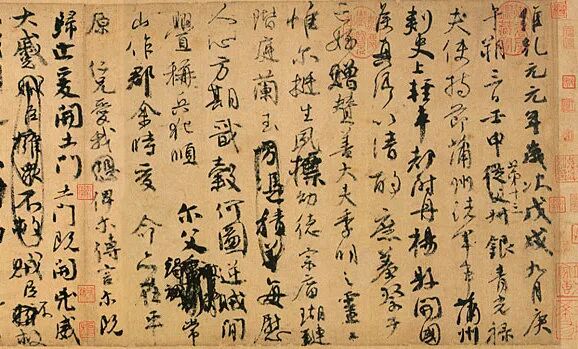 維乾元元年歲次戊戌九月庚
午朔三日壬申第十三叔銀青光祿
夫使持節蒲州諸軍事蒲州
刺史上輕車都尉丹楊縣開國
侯真卿以清酌庶羞祭于
亡姪贈贊善大夫季明之靈曰
惟爾挺生夙標幼德宗廟瑚璉
階庭蘭玉方憑積善每慰
人心方期戩穀何圖逆賊閒
釁稱兵犯順爾父竭誠常
山作郡余時受命亦在平
原仁兄愛我恐俾爾傳言爾既
歸止爰開土門土門既開凶威
大蹙賊臣擁眾不救賊臣不救